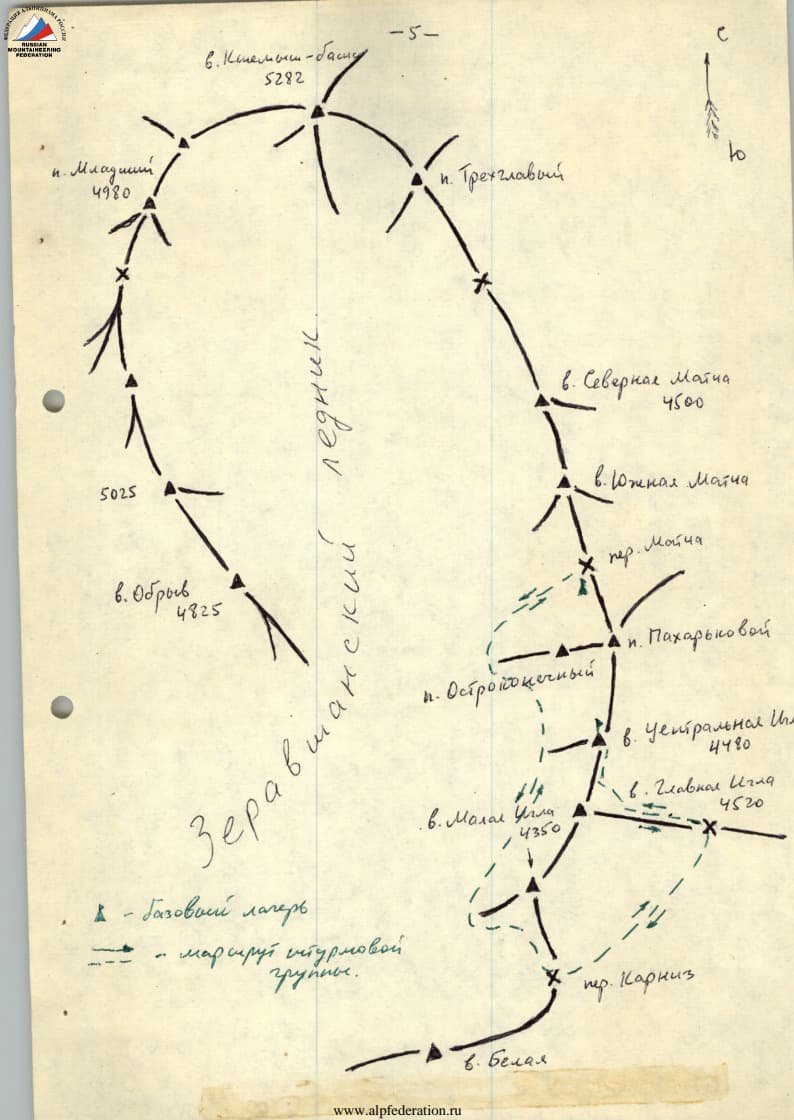 ФЕДЕРАЦИЯ АЛЬПИНИЗМА РОССИИ
RUSSIAN
MOUNTAINEERING
FEDERATION
-5-
С
Ю
в. Кшемыш-баши
5282
п. Младший
4980
п. Трехглавый
в. Северная Матча
4500
в. Южная Матча
5025
пер. Матча
в. Обрыв
4825
п. Пахарьковой
п. Остроконечный
в. Центральная
4490
в. Главная Игла
4520
в. Малая Игла
4350
Зеравшанский ледник.
- базовый лагерь
- маршрут штурмовой
группы.
пер. Карниз
в. Белая
www.alpfederation.ru